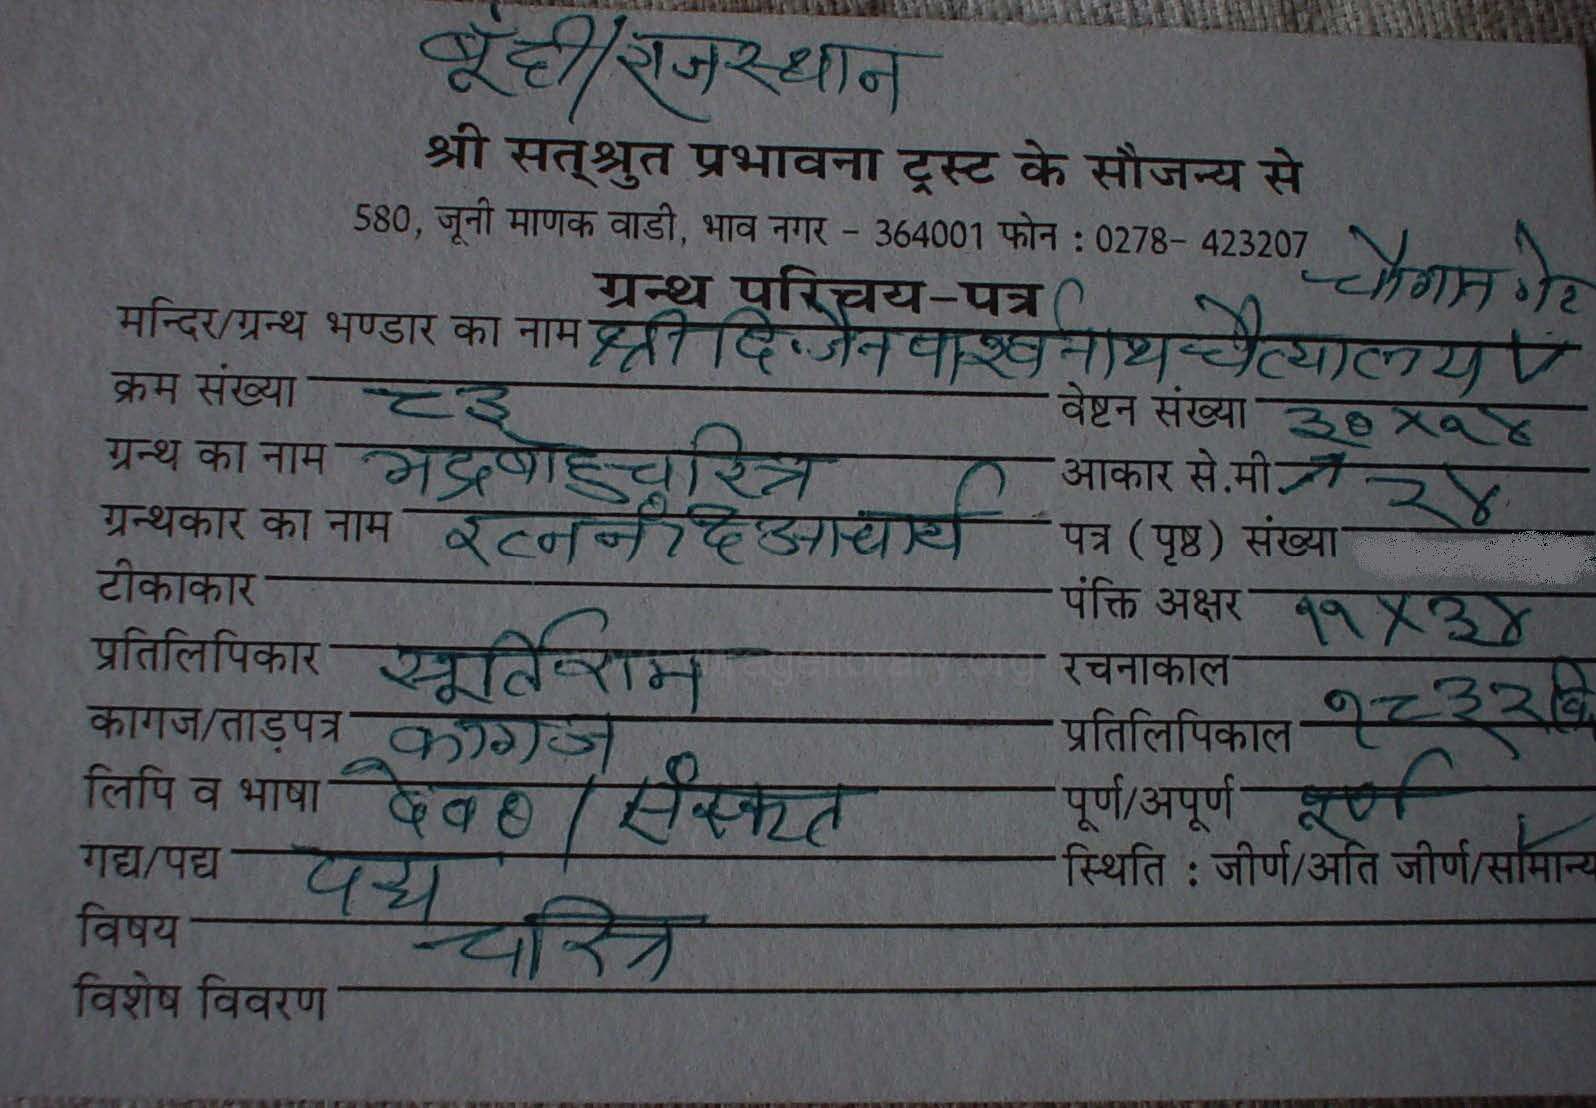 बूँदी/राजस्थान
श्री सत्श्रुत प्रभावना ट्रस्ट के सौजन्य से
580, जूनी माणक वाडी, भाव नगर - 364001 फोन : 0278- 423207
चौगान गेट
ग्रन्थ परिचय-पत्र
मन्दिर/ग्रन्थ भण्डार का नाम श्री दि. जैन पार्श्वनाथ चैत्यालय
क्रम संख्या ८३ वेष्टन संख्या
ग्रन्थ का नाम भद्रबाहुचरित्र आकार से.मी. ३०×१४
ग्रन्थकार का नाम रत्ननंदि आचार्य पत्र (पृष्ठ) संख्या २४
टीकाकार पंक्ति अक्षर ११×३४
प्रतिलिपिकार रचनाकाल
कागज/ताड़पत्र कागज प्रतिलिपिकाल १८३२ वि
लिपि व भाषा देव०/संस्कृत पूर्ण/अपूर्ण पूर्ण
गद्य/पद्य पद्य स्थिति : जीर्ण/अति जीर्ण/सामान्य
विषय चरित्र
विशेष विवरण